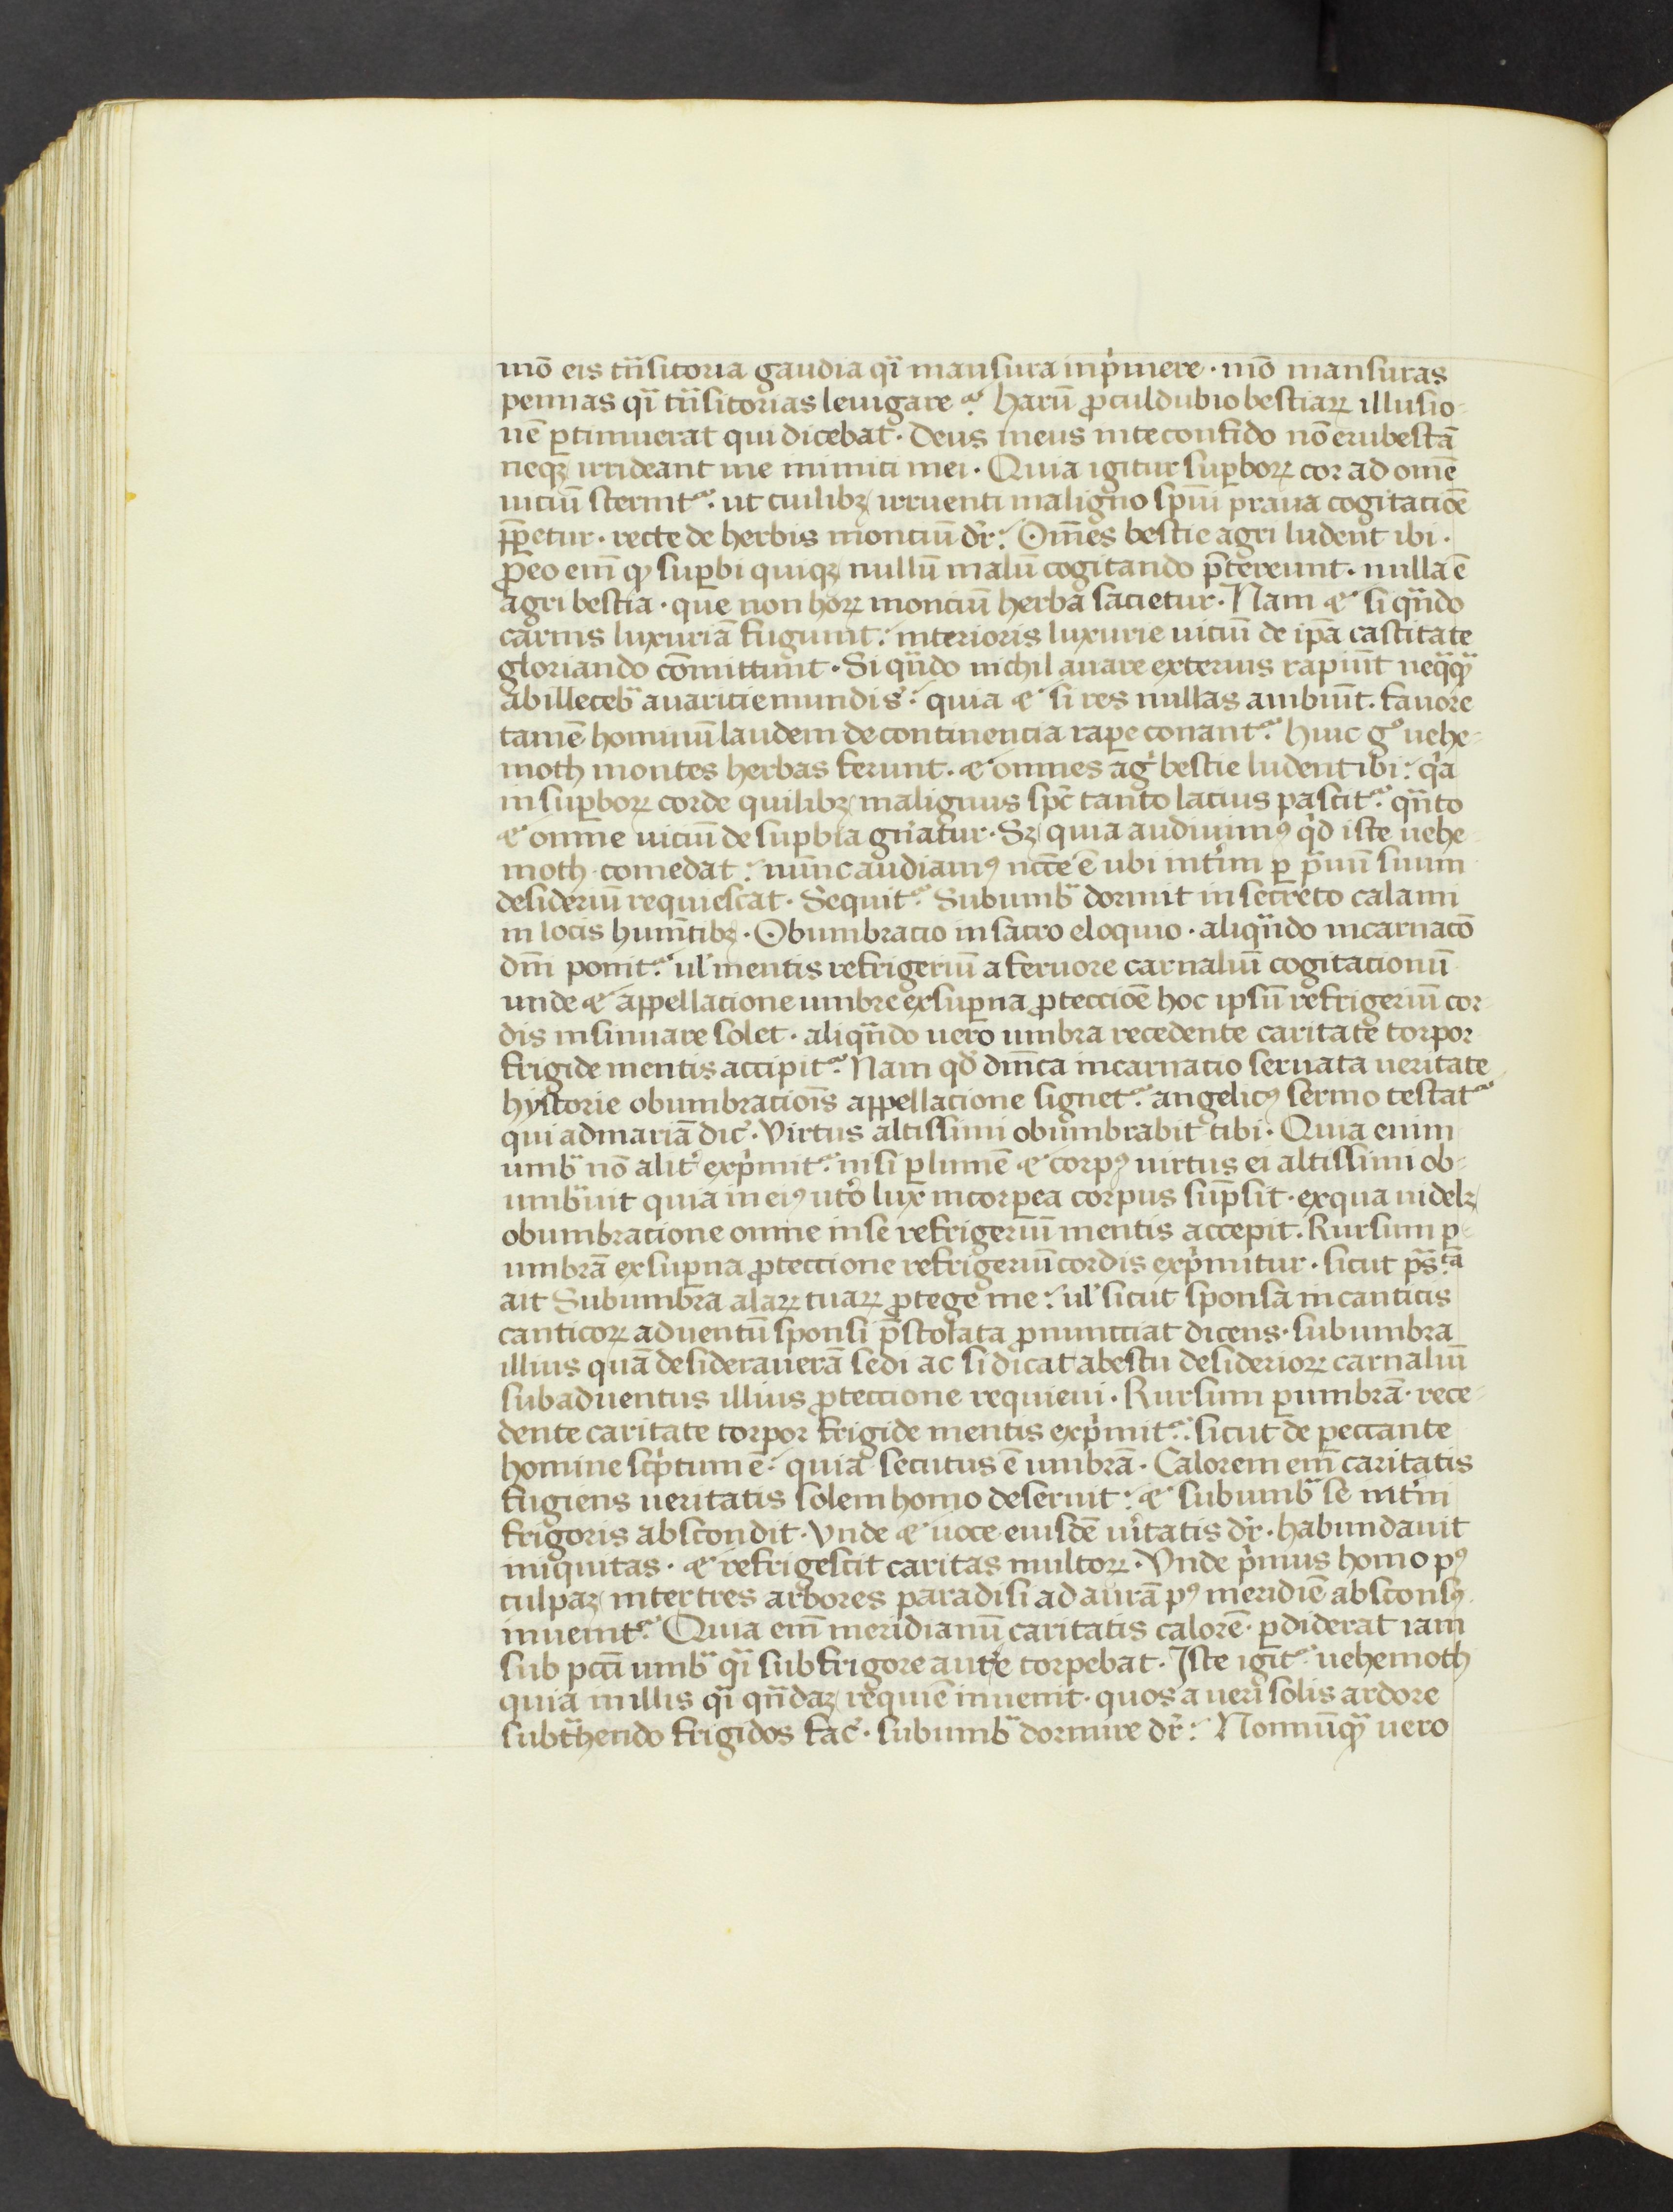 mo᷒ eis tn̄sitoria gaudia qᷓi mansura inp͛mere · mō mansuras
pennas qᷓi tn̄sitorias leuigare · Harū ꝓculdubio bestiaꝝ illusio-
nē ꝑtimuerat qui dicebat · Deus meus in te confido nō erubescā
neqꝫ irrideant me inimici mei · Quia igitur suꝑboꝝ cor ad omē
uiciū sternit᷑ · ut cuilibꝫ irruenti maligno spūi praua cogitacioē
ꝓstetur · recte de herbis monciū dr᷑ · Om̄es bestie agri ludent ibi ·
Ꝓ eo em̄ ꝙ suꝑbi quiqꝫ nullū malū cogitando p̄tereunt · nulla ē
agri bestia · que non hoꝝ monciū herba sacietur · Nam & si qn̄do
carnis luxuriā fugiunt · interioris luxurie uiciū de ip̄a castitate
gloriando cōmittunt · Si qn̄do nichil auare exterius rapiūt neqᷓqᷓ
ab illecebᷓ auaricie mundi s̄ · quia & si res nullas ambiūt · fauore
tamē hominū laudem de continencia raꝑe conant᷑ · Huic gͦ uehe-
moth montes herbas ferunt · & omnes agͥ bestie ludent ibi · qͥa
in suꝑboꝝ corde quilibꝫ malignus spc̄ tanto lacius pascit᷑ · qn̄to
& omne uiciū de suꝑbia gn̄atur · Sꝫ quia audiuimꝰ qͥd iste uehe-
moth comedat · nunc audiamꝰ ncc̄e ē ubi intͥm ꝑ p̄uū suum
desideriū requiescat · Sequit᷑ · Sub umbᷓ dormit in secreto calami
in locis humn̄tibꝫ · Obumbracio in sacro eloquio · aliqn̄do incarnacō
dn̄i ponit᷑ · ul᷑ mentis refrigeriū a feruore carnaliū cogitacionū
unde & appellacione umbre ex suꝑna ꝓteccioē hoc ipsū refrigeriū cor-
dis insinuare solet · aliqn̄do uero umbra recedente caritate torpor
frigide mentis accipit᷑ · Nam qd̄ dn̄ica incarnacio seruata ueritate
hystorie obumbracioīs appellacione signet᷑ · angelicꝰ sermo testat᷑
qui ad mariā dic̄ · Virtus altissimi obumbrabit tibi · Quia enim
umbᷓ nō alit͛ exp͛mit᷑ · nisi ꝑ lumē & corpꝰ uirtus ei altissimi ob-
umbᷓuit quia in eiꝰ utͦo lux incorꝑea corpus sūpsit · ex qua uidelꝫ
obumbracione omne in se refrigeriū mentis accepit · Rursum ꝑ
umbrā ex suꝑna ꝓteccione refrigeriū cordis exp͛mitur · sicut ps̄ta
ait Sub umbra alaꝝ tuaꝝ ꝓtege me · ul᷑ sicut sponsa in canticis
canticoꝝ aduentū sponsi p̄stolata ꝓnunciat dicens · sub umbra
illius quā desiderauerā sedi ac si dicat ab estu desiderioꝝ carnaliū
sub aduentus illius ꝓteccione requieui · Rursum ꝑ umbrā · rece-
dente caritate torpor frigide mentis exp͛mit᷑ · sicut de peccante
homine scͥptum ē · quia secutus ē umbrā · Calorem em̄ caritatis
fugiens ueritatis solem homo deseruit · & sub umbᷓ se intͥm
frigoris abscondit · Vnde & uoce eiusdē uͥtatis dr᷑ · habundauit
iniquitas · & refrigescit caritas multoꝝ · Vnde pͥmus homo pꝰ
culpaꝫ inter tres arbores paradisi ad aurā pꝰ meridiē absconsꝰ
inuenit᷑ · Quia em̄ meridianū caritatis calorē · ꝑdiderat iam
sub pcc̄i umbᷓ qᷓi sub frigore aure torpebat · Iste igit᷑ uehemoth
quia in illis qᷓi qn̄daꝫ requiē inuenit · quos a ueri solis ardore
subtᷓhendo frigidos fac̄ · sub umbᷓ dormire dr᷑ · Nonnūqᷓ uero